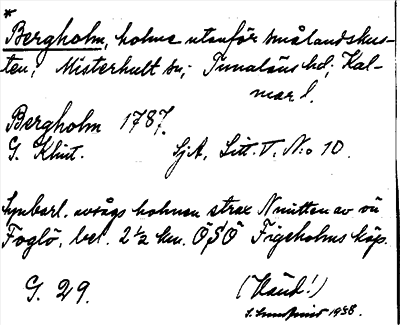 *
Bergholm, holme utanför smålandskus-
ten; Misterhult sn; Tunaläns hd, Kal-
mar l.
Bergholm 1787.
G. Klint. SjA, Litt. T. N:o 10.
Synbarl. avsågs holmen strax N mitten av ön
Foglö, bel. 2½ km. ÖSÖ Figeholms köp.
G. 29. (Känd!)
1938.